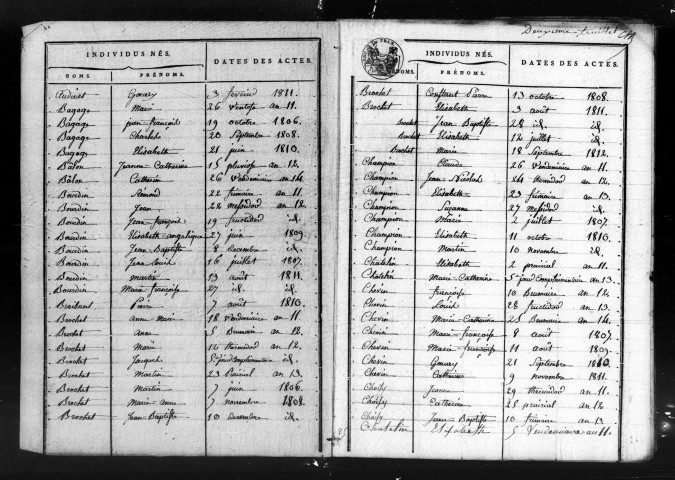 INDIVIDUS NÉS.
DATES DES ACTES.
NOMS. PRÉNOMS.
Audinet 3 février 1811.
Bagage Marie 26 Ventose an 11.
Bagage jean françois 19 octobre 1806.
Bagage Charles 20 Septembre 1808.
Bagage Elisabeth 21 juin 1810.
Balon Jeanne Catherine 15 pluviose an 12.
Balon Catherine 26 Vendemiaire an 14.
Bourdin 22 frimaire an 11.
Bourdin Jean 22 Messidor an 12.
Bourdin Jean françois 19 fructidor id.
Bourdin Elisabeth angelique 27 juin 1809.
Bourdin Jean Baptiste 8 decembre id.
Bourdin Jean Louis 16 juillet 1807.
Bourdin martin 13 août 1811.
Bourdin Marie françoise 27 id. id.
Braibant 7 août 1810.
Brochet Anne Marie 18 Vendemiaire an 11.
Brochet Anne 5 Brumaire an 12.
Brochet Marie 12 thermidor an 12.
Brochet Jacques 5e jour Complémentaire id.
Brochet Martin 23 Prairial an 13.
Brochet Martin 7 juin 1806.
Brochet Marie anne 7 novembre 1808.
Brochet Jean Baptiste 10 decembre id.
Deuxieme feuillet
INDIVIDUS NÉS.
DATES DES ACTES.
NOMS. PRÉNOMS.
Brochet Constant Pierre 13 octobre 1808.
Brochet Elisabeth 3 août 1811.
Brochet Jean Baptiste 28 id. id.
Brochet Elisabeth 12 juillet id.
Brochet Marie 18 Septembre 1812.
Champion Claude 26 Vendemiaire an 11.
Champion Jean Nicolas 24 thermidor an 12.
Champion Elisabeth 23 frimaire an 13.
Champion Suzanne 27 Messidor an 13.
Champion Marie 2 juillet 1807.
Champion Elisabeth 11 octobre 1810.
Champion Martin 10 novembre id.
Chatelin Elisabeth 2 prairial an 11.
Chatelin Marie Catherine 5e jour Complémentaire an 13.
Chevin françoise 10 Brumaire an 12.
Chevin Louise 28 fructidor an 13.
Chevin Marie Catherine 25 Brumaire an 14.
Chevin Marie françoise 8 août 1807.
Chevin Marie françoise 11 août 1809.
Chevin 21 Septembre 1810.
Chevin Catherine 9 novembre 1811.
Choisy Jeanne 29 thermidor an 11.
Choisy Catherine 25 prairial an 12.
Choisy Jean Baptiste 10 frimaire an 13.
Chatelin Elisabeth 5 Vendemiaire an 11.